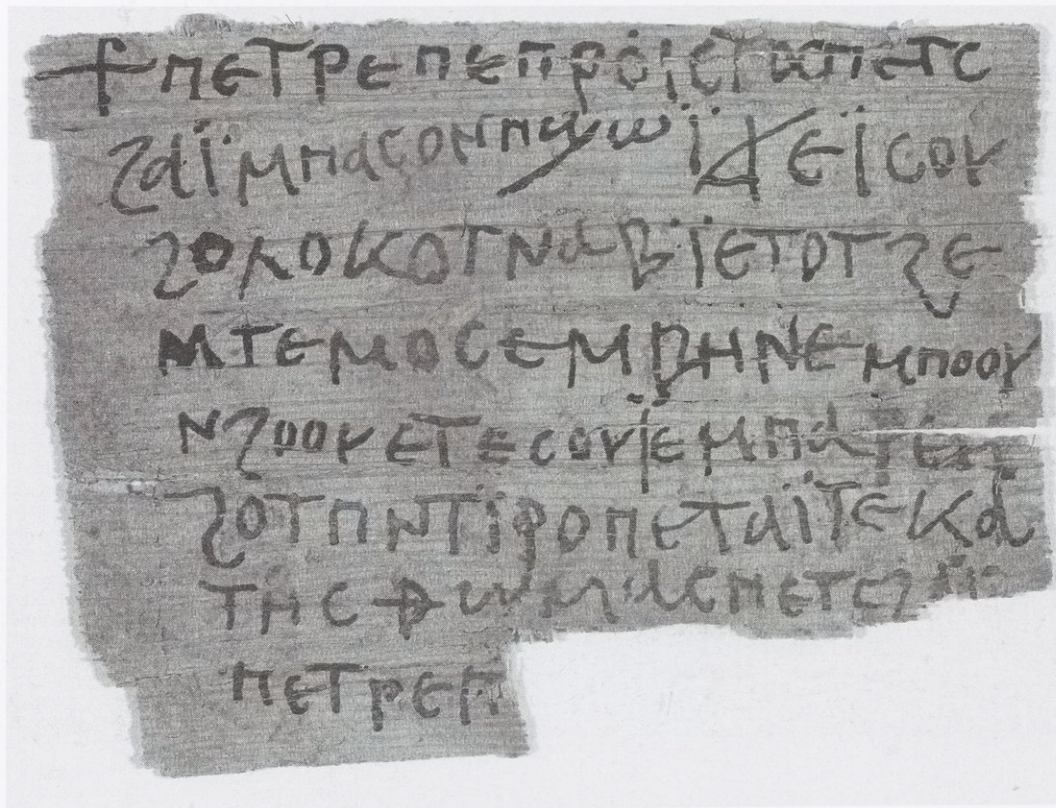 ϯ ⲡⲉⲧⲣⲉ ⲡⲉⲡⲣⲟ ⲡⲉⲧⲥ
ϩⲁⲓ̈ ⲙⲡⲁⲥⲟⲛ ⲉⲓ̈ⲥⲟⲩ
ϩⲟⲗⲟⲕⲟⲧ ⲛⲁⲃⲓ̈ ⲉⲧⲟⲧ ϩⲉ
ⲙⲧⲉⲙⲟⲥⲉ ⲙⲃⲏⲛⲉ ⲙⲡⲟⲟⲩ
ⲛϩⲟⲟⲩ ⲉⲧⲉ ⲥⲟⲩ ⲓ̅ⲉ̅
ϩⲟⲧⲡ ⲛⲧⲓ̈ⲣⲟⲡⲉ ⲧⲁⲓ̈ ⲧⲉ ⲕⲁ
ⲧⲏⲥ ⲑⲱⲙⲁⲥ ⲡⲉⲧⲥϩⲁⲓ̈
ⲡⲉⲧⲣⲉ ⲡ